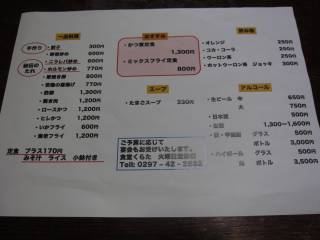 一品料理
手作り
・餃子 300円
・野菜炒め 600円
秘伝のたれ
・ニラレバ炒め 600円
・ホルモン炒め 770円
・若鶏の唐揚げ 770円
1,200円
1,200円
・ロースかつ 1,200円
・ヒレかつ 1,200円
・いかフライ 600円
・海老フライ 1,200円
定食 プラス170円
みそ汁 ライス 小鉢付き
おすすめ
・かつ煮定食
1,300円
・ミックスフライ定食
800円
スープ
・たまごスープ 330円
ご予算に応じて
宴会もお受けいたします。
食堂くらた 火曜日定休日
Tell: 0297-42-2882
飲み物
・オレンジ 250円
・コカ・コーラ 250円
・ウーロン茶 250円
・ホットウーロン茶 ジョッキ 300円
アルコール
・生ビール 中 550円
大 750円
・日本酒 500円
1,300～1,600円
グラス 500円
ボトル 3,000円
・ハイボール グラス 500円
ボトル 3,500円